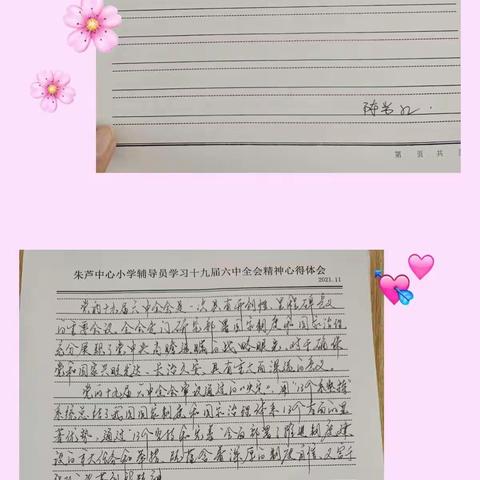 第 页 共
朱芦中心小学辅导员学习十九届六中全会精神心得体会
2021.11
党的十九届六中全会是一次具有开创性、里程碑意义
的重要会议，全会专门研究部署国家制度和国家治理
充分展现了党中央高瞻远瞩的战略眼光，对于确保
党和国家兴旺发达、长治久安，具有重大而深远的意义。
党的十九届六中全会审议通过的《决定》，用"13个坚持"
系统总结了我国国家制度和国家治理体系13个方面的显
著优势，通过"13个坚持和完善"全面部署了推进制度建
设的重大任务和举措，既蕴含着深厚的制度自信，又